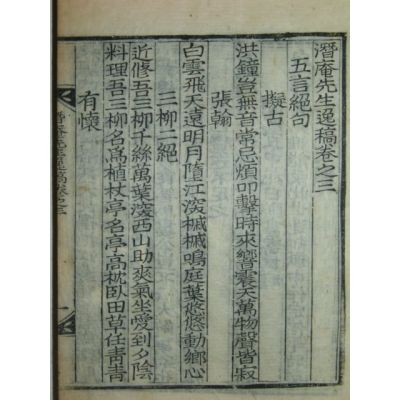 潛庵先生逸稿卷之三
五言絕句
擬古
洪鐘豈無音常忌煩叩擊時來響震天萬物聲皆寂
張翰
白雲飛天遠明月墮江深槭槭鳴庭葉悠悠動鄕心
三柳二絕
近修吾三柳千絲萬葉深西山助爽氣坐愛到夕陰
料理吾三柳名高植杖亭名亭高枕臥田草任靑靑
有懷
潛庵先生逸稿卷之三
一